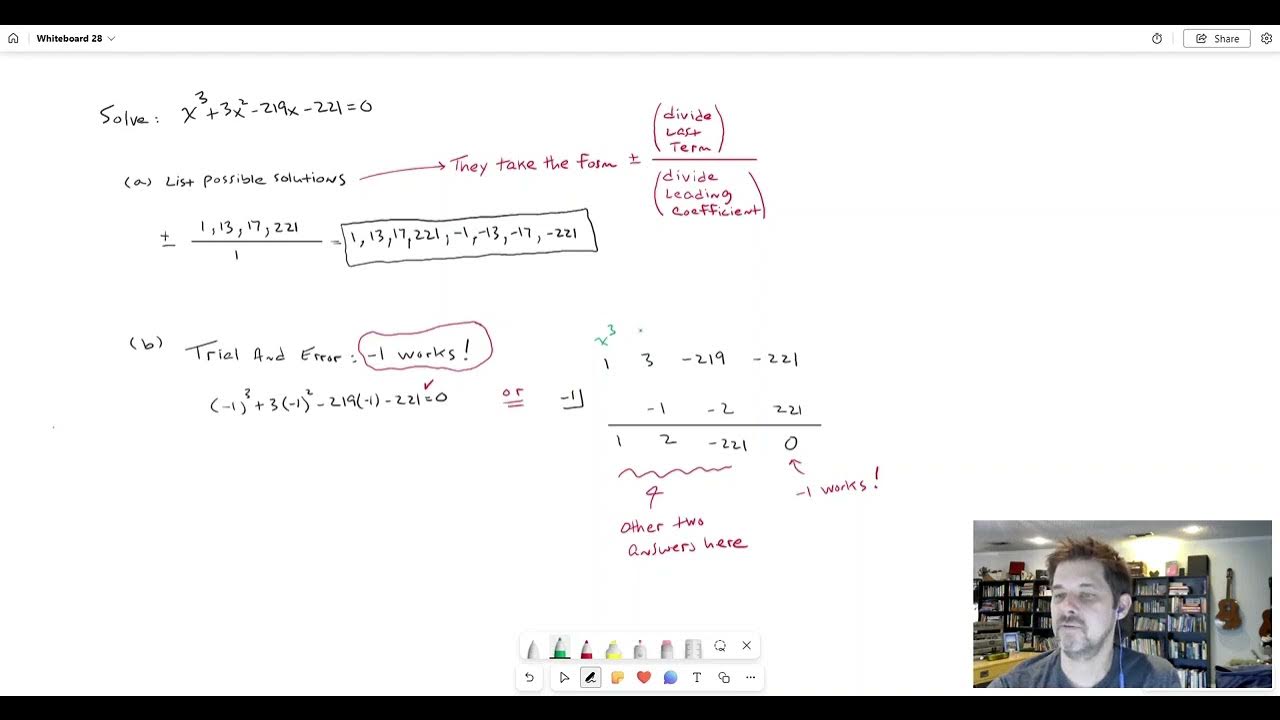 Whiteboard 28
Share
Solve: x³+3x²-219x-221=0
(a) List possible solutions
They take the form ± (divide Last Term) / (divide Leading coefficient)
± 1, 13, 17, 221 / 1 = 1, 13, 17, 221, -1, -13, -17, -221
(b) Trial And Error: -1 works!
(-1)³+3(-1)²-219(-1)-221=0 ✓
or
x³
1 3 -219 -221
-1⌋ -1 -2 221
1 2 -221 0
-1 works!
other two
answers here
T